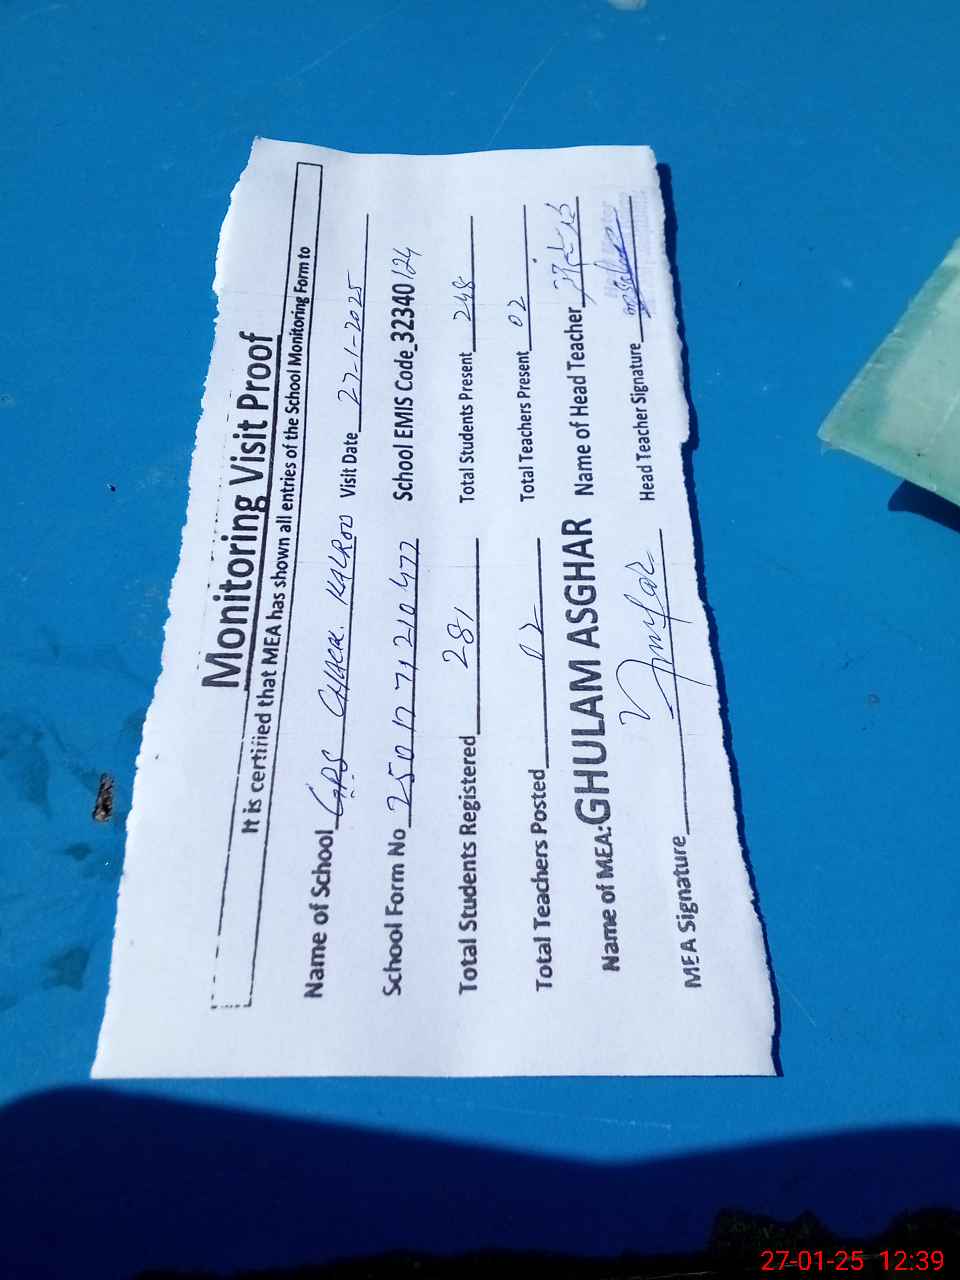 Monitoring Visit Proof
It is certified that MEA has shown all entries of the School Monitoring Form to
Name of School GPS CHACK KALROO Visit Date 27-1-2025
School Form No 25017 71210477 School EMIS Code 32340124
Total Students Registered 281 Total Students Present 248
Total Teachers Posted 02 Total Teachers Present 02
Name of MEA: GHULAM ASGHAR Name of Head Teacher
MEA Signature Head Teacher Signature
27-01-25 12:39